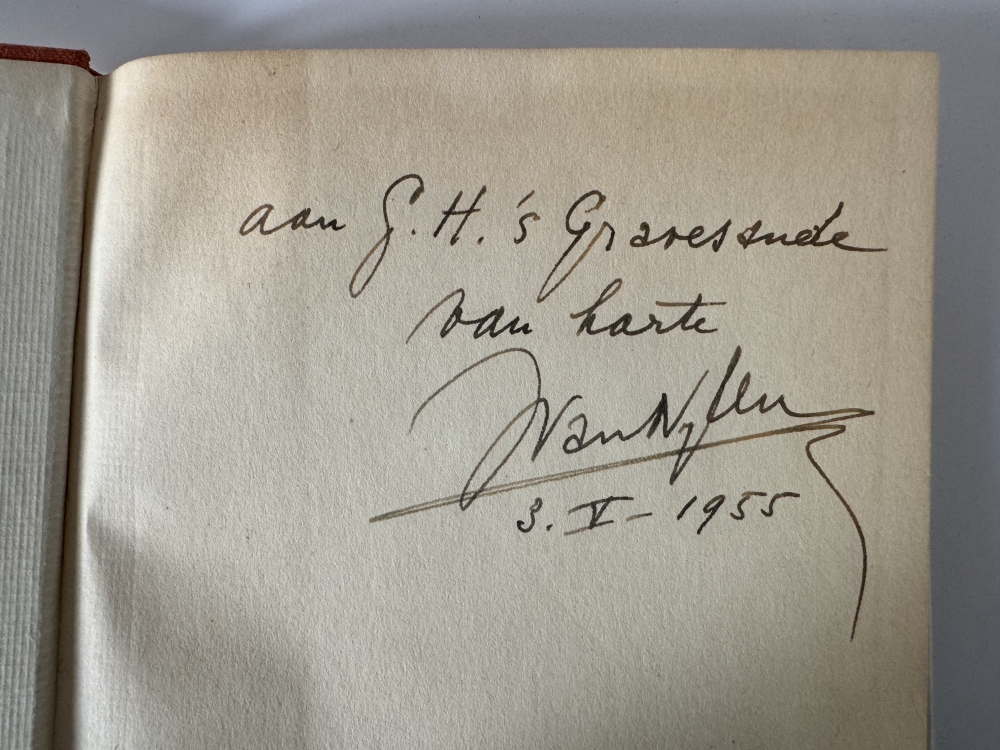 aan G.H. 's Gravesande
van harte
JVanNijlen
3. V - 1955